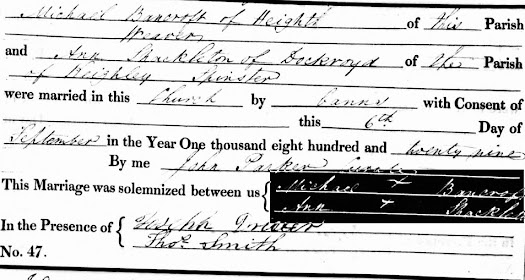 Michael Bancroft of Heights of this Parish
Weaver
and Ann Shackleton of Dockroyd of the Parish
of Keighley Spinster
were married in this Church by Banns with Consent of
this 6th Day of
September in the Year One thousand eight hundred and twenty nine
By me John Parker Curate
This Marriage was solemnized between us { Michael + Bancroft
Ann + Shackleto
In the Presence of { Joseph
Thos. Smith
No. 47.